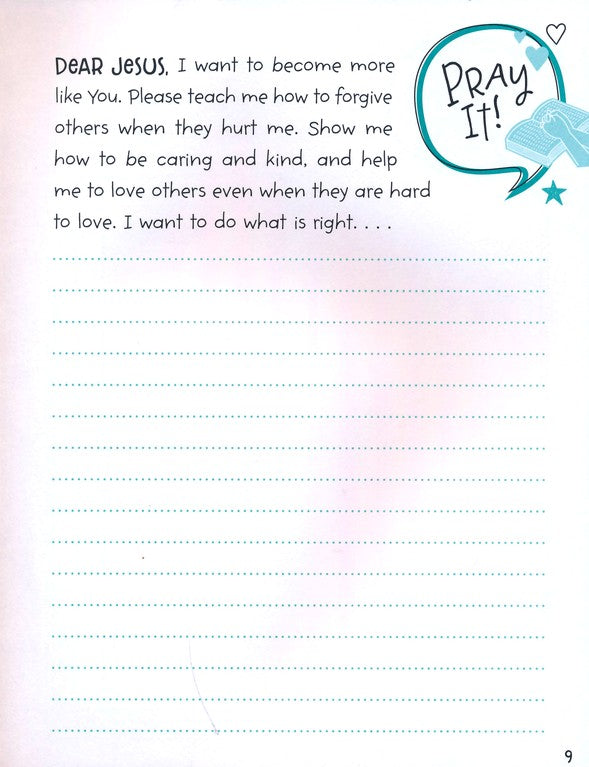 DEAR JESUS, I want to become more
like You. Please teach me how to forgive
others when they hurt me. Show me
how to be caring and kind, and help
me to love others even when they are hard
to love. I want to do what is right. . . .
PRAY
It!
9